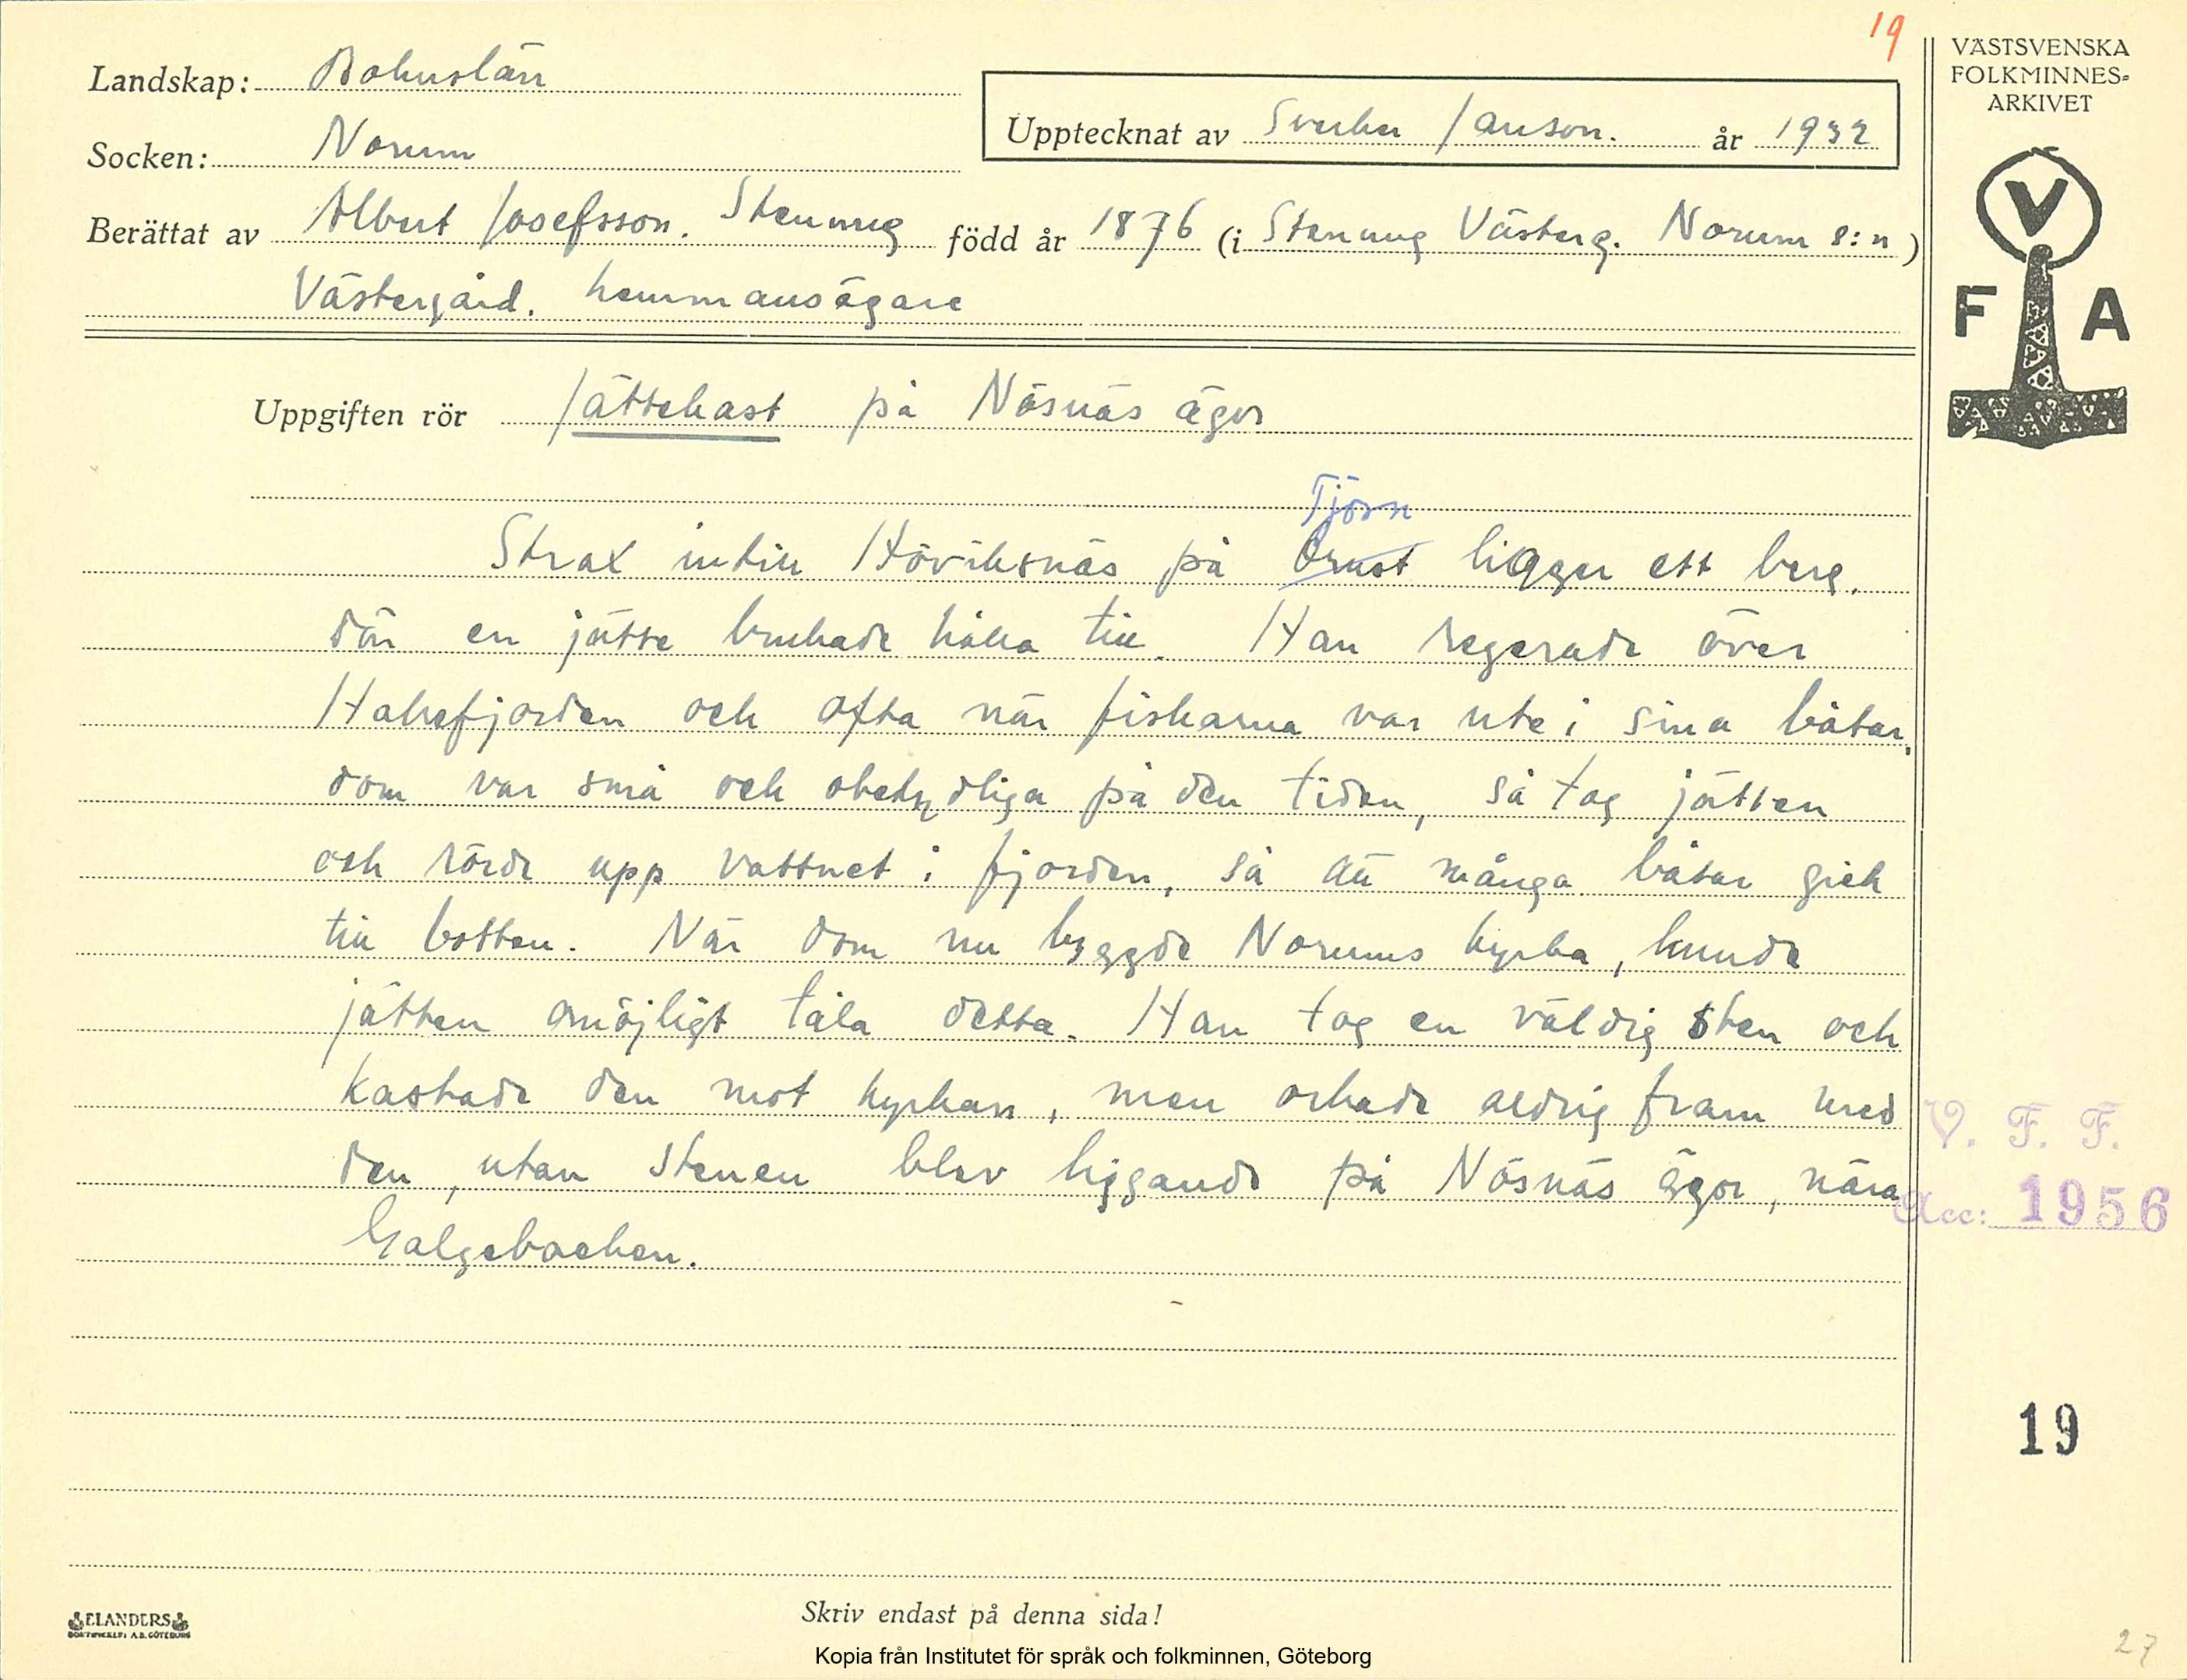 19
Landskap: Bohuslän
Socken: Norum
Upptecknat av Sverker Janson. år 1932
Berättat av Albert Josefsson. Stenung född år 1876 (i Stenung Västerg. Norum s:n)
Västergård. hemmansägare
VÄSTSVENSKA
FOLKMINNES-
ARKIVET
V
F A
Uppgiften rör Jättekast på Näsnäs ägor
Tjörn
Strax intill Höviksnäs på Orust ligger ett berg.
där en jätte brukade hålla till. Han regerade över
Hakefjorden och ofta när fiskarna var ute i sina båtar,
dom var små och obetydliga på den tiden, så tog jätten
och rörde upp vattnet i fjorden, så att många båtar gick
till botten. När dom nu byggde Norums kyrka, kunde
jätten omöjligt tåla detta. Han tog en väldig sten och
kastade den mot kyrkan, men orkade aldrig fram med
den, utan stenen blev liggande på Näsnäs ägor, nära
Galgebacken.
V. F. F.
Acc: 1956
19
ELANDERS
BOKTRYCKERI A.B. GÖTEBORG
Skriv endast på denna sida!
Kopia från Institutet för språk och folkminnen, Göteborg
27